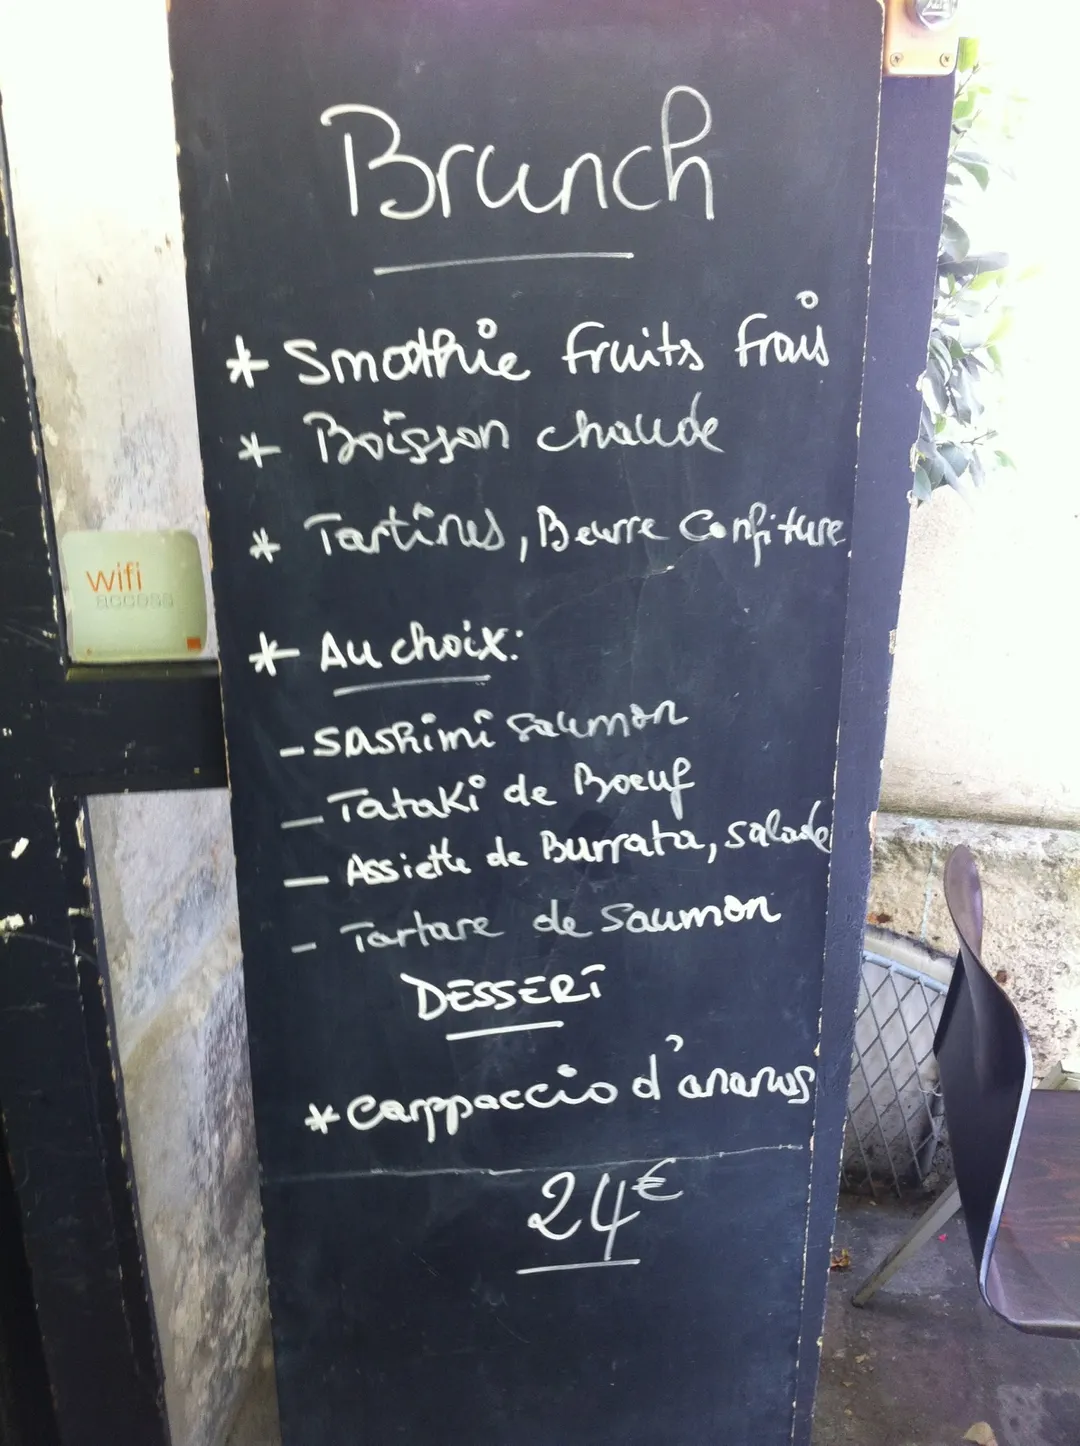 Brunch
* Smoothie fruits frais
* Boisson chaude
* Tartines, Beurre Confiture
wifi
access
* Au choix:
- Sashimi saumon
- Tataki de Boeuf
- Assiette de Burrata, salade
- Tartare de Saumon
DESSERT
* Carppaccio d'ananas
24€